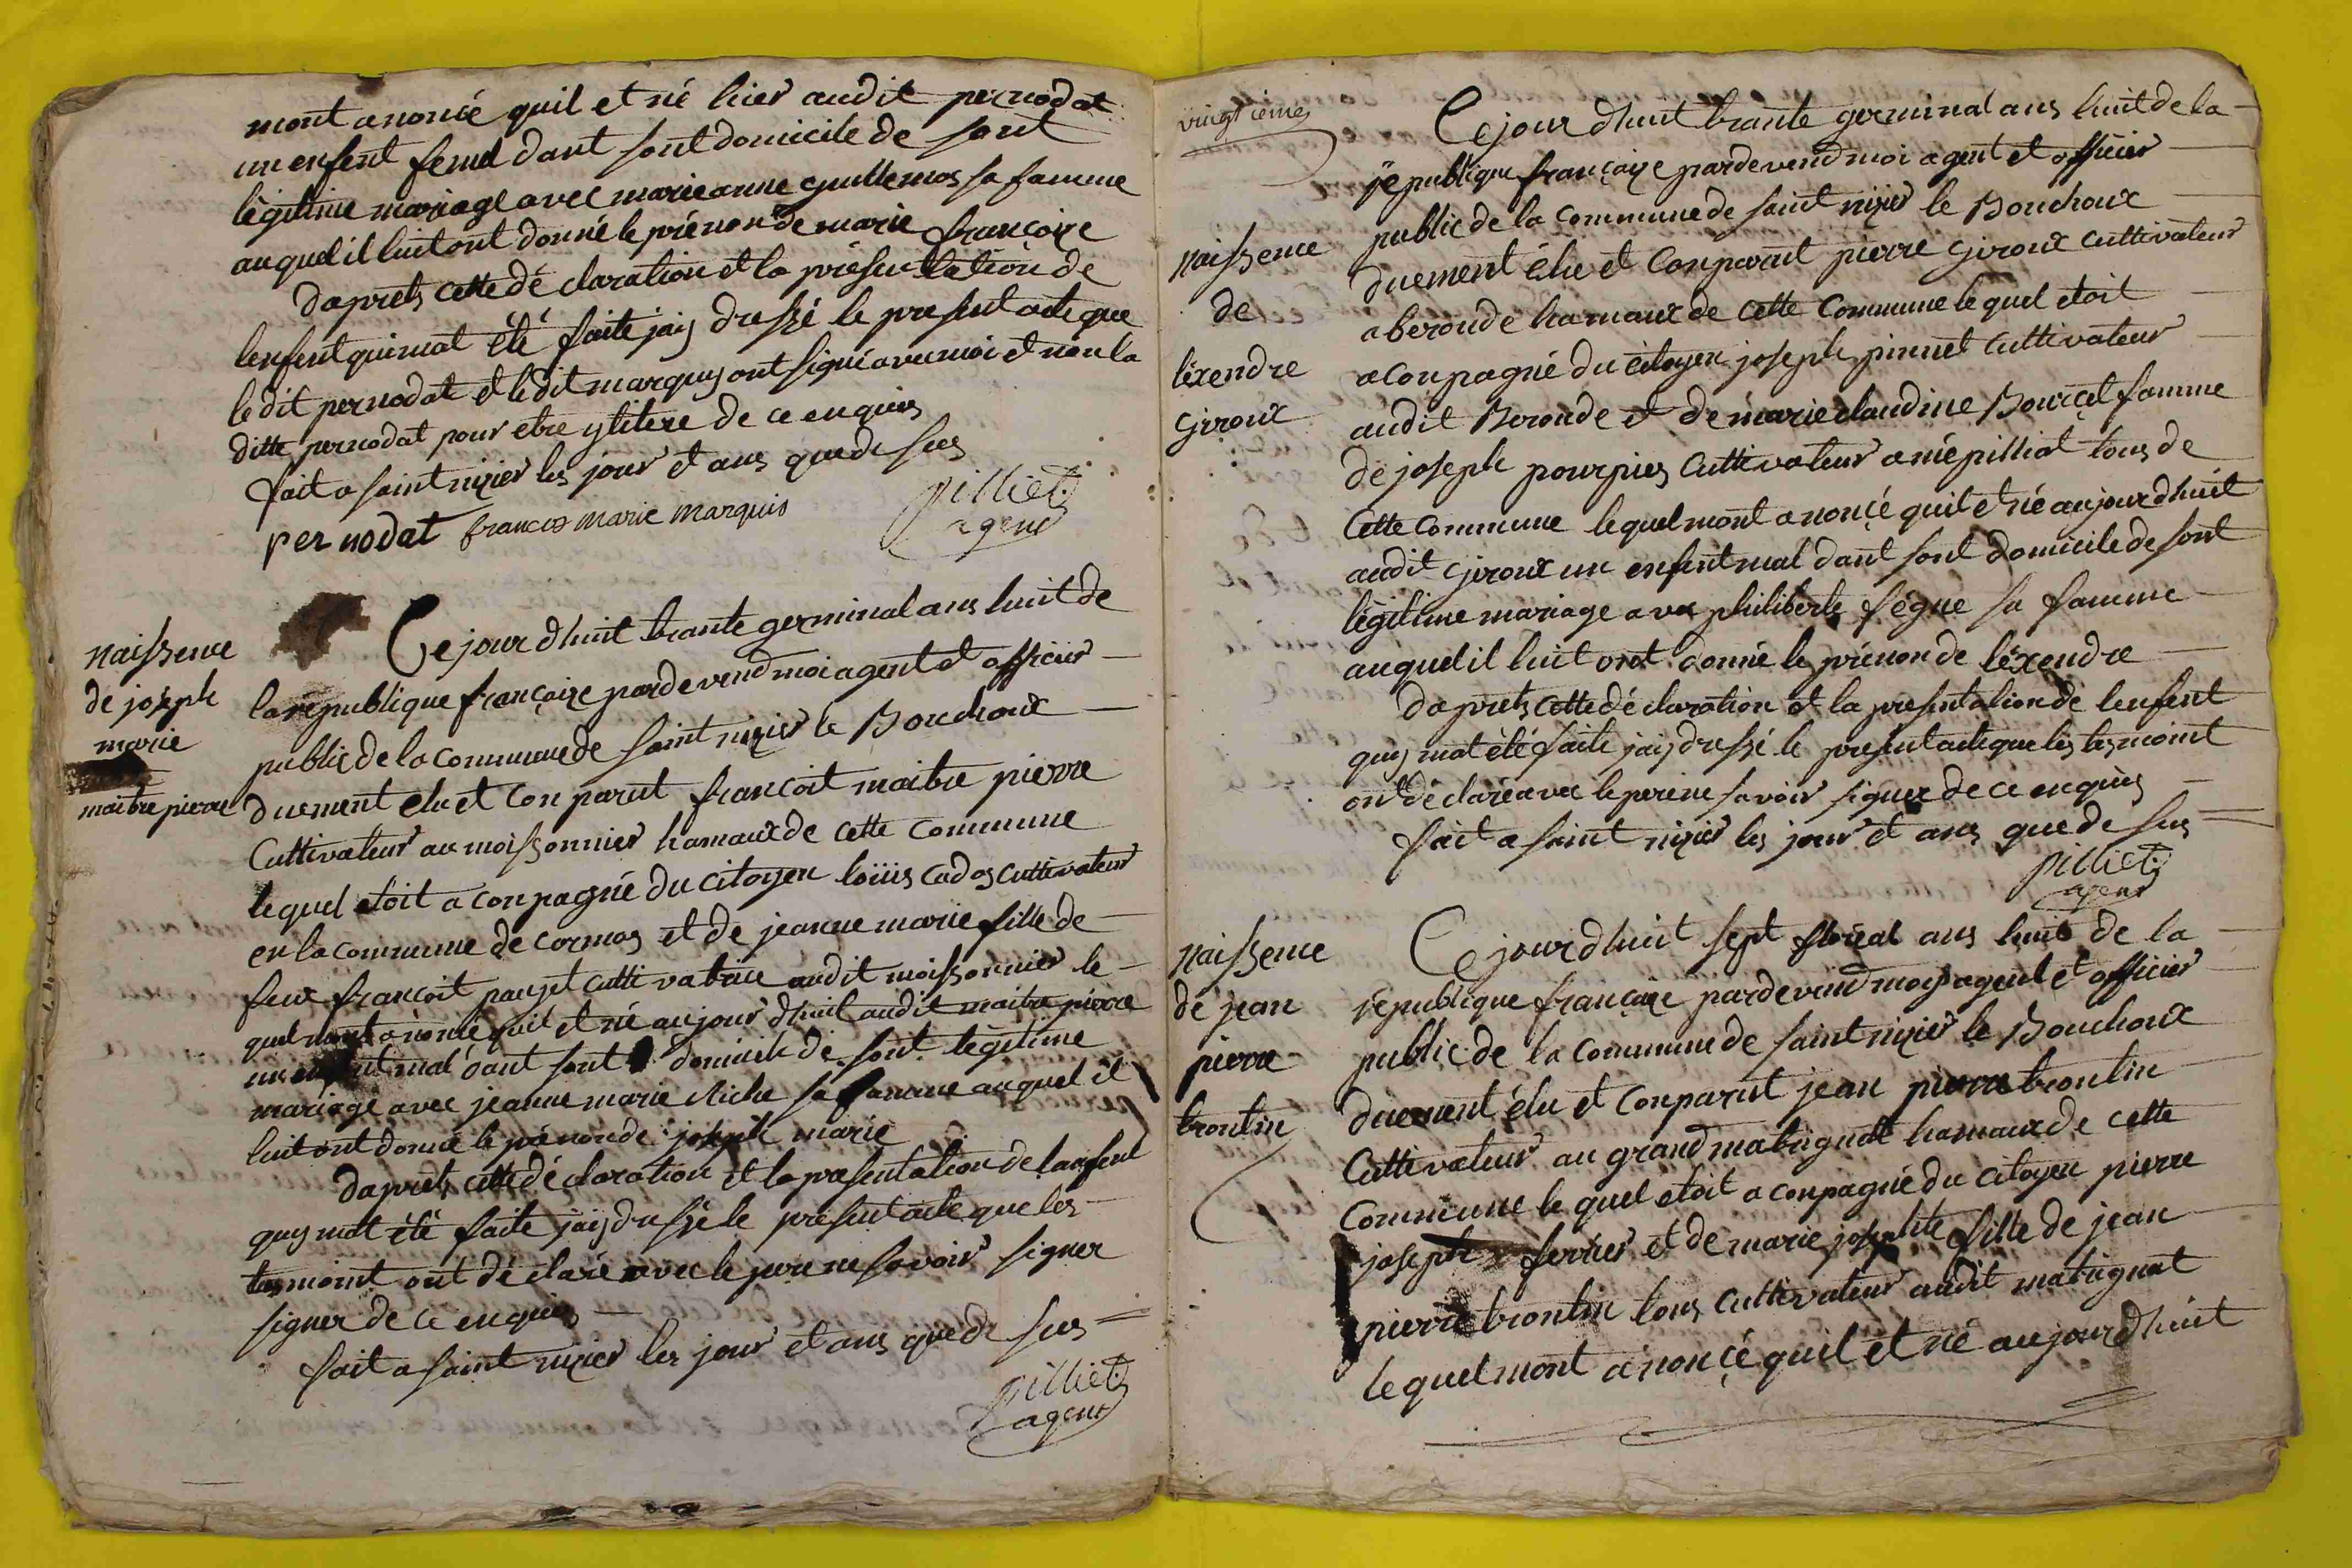 mont anoncé quil et né hier audit pernodat
un enfent femel dant sont domicile de sont
légitime mariage avec marie anne guillemos sa famme
auquel il luit ont donné le prénon de marie françoize
daprets cette dé claration et la présentation de
lenfent qui mat été faite jaiy dressé le present acte que
le dit pernodat et ledit marquy ont signé avec moi et non la
ditte pernodat pour etre ylitere de ce enquis
fait a saint nizier les jour et ans que de sus
pernodat francois marie marquis
pilliet
agend
naissence
de joseph
marie
maitre pierre
Ce jour dhuit trante germinal ans huit de
la république françaize pardevend moi agent et officier
public de la commune de saint nizier le Bouchoux
duement elu et conparut françoit maitre pierre
Cultivateur au moissonnier hamaux de cette commune
lequel etoit a conpagné du citoyen loüis cados cultivateur
en la commune de cormos et de jeanne marie fille de
feux françoit panzet cultivatrice audit moissonnier le
quel mont anoncé quil et né aujour dhuit audit maitre pierre
un enfent mal dant sont domicile de sont légitime
mariage avec jeanne marie Miche sa famme auquel il
luit ont donné le prénon de joseph marie
daprets cette dé claration et la presentation de lanfent
quy mat été faite jaiy dressé le présent acte que les
tesmoint ont dé claré avec le pere ne savoir signer
signer de ce enquis
fait a saint nizier les jour et ans que de sus
pilliet
agend
vingtieme
naissence
de
léxendre
giroux
Ce jour dhuit trante germinal ans huit de la
république françaize pardevend moi agent et officier
public de la commune de saint nizier le Bouchoux
duement élu et Conparut pierre giroux cultivateur
a beronde hamaux de cette Commune lequel etoit
a conpagné du citoyen joseph pinnet cultivateur
audit Beronde et de marie claudine Bourcet famme
de joseph pourpies cultivateur a mépilliat tous de
Cette Commune lequel mont anoncé quil et né aujourdhuit
audit giroux un enfent mal dant sont domicile de sont
légitime mariage avec philiberte fégue sa famme
auquel il luit ont donné le prénon de léxendre
daprets cette dé claration et la presentation de lenfent
quy mat été faite jaiy dressé le présent acte que les tesmoint
ont dé claré avec le pere ne savoir signer de ce enquis
fait a saint nizier les jour et ans que de sus
pilliet
agend
naissence
de jean
pierre
trontin
Ce jour dhuit sept floréal ans huit de la
république françaize pardevend moy agent et officier
public de la commune de saint nizier le Bouchoux
duement élu et conparut jean pierre trontin
Cultivateur au grand matrignat hamaux de cette
Commune le quel etoit a conpagné du citoyen pierre
joseph ferrier et de marie josephte fille de jean
pierre trontin tous cultivateur audit matrignat
lequel mont anoncé quil et né aujourdhuit